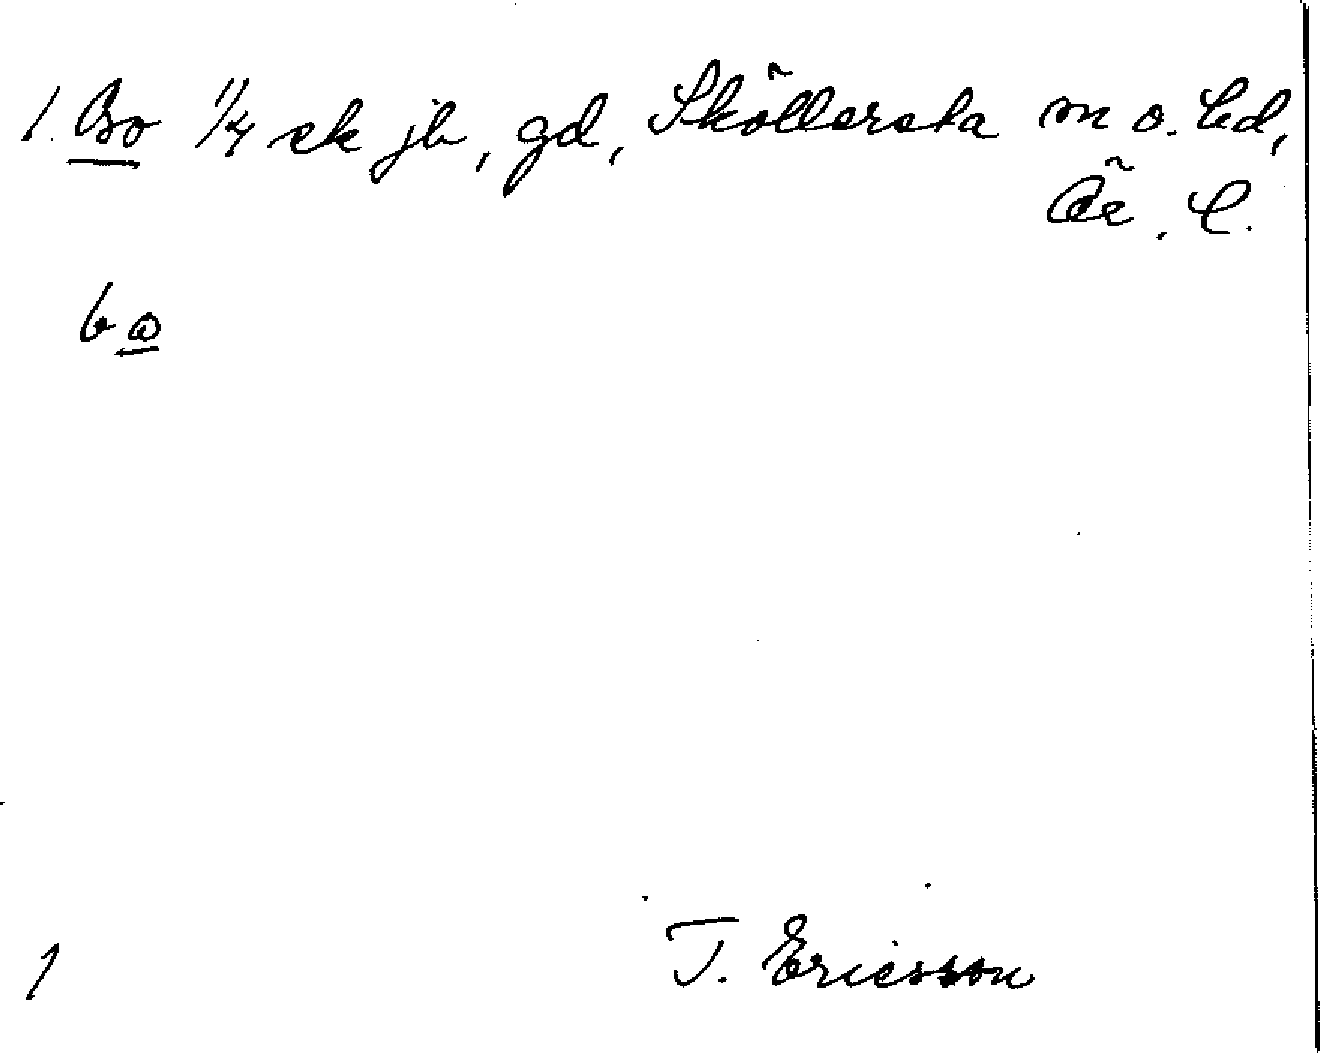 1. Bo 1/4 sk jb, gd, Sköllersta sn o. hd,
Ör. l.
bω
1
T. Ericsson